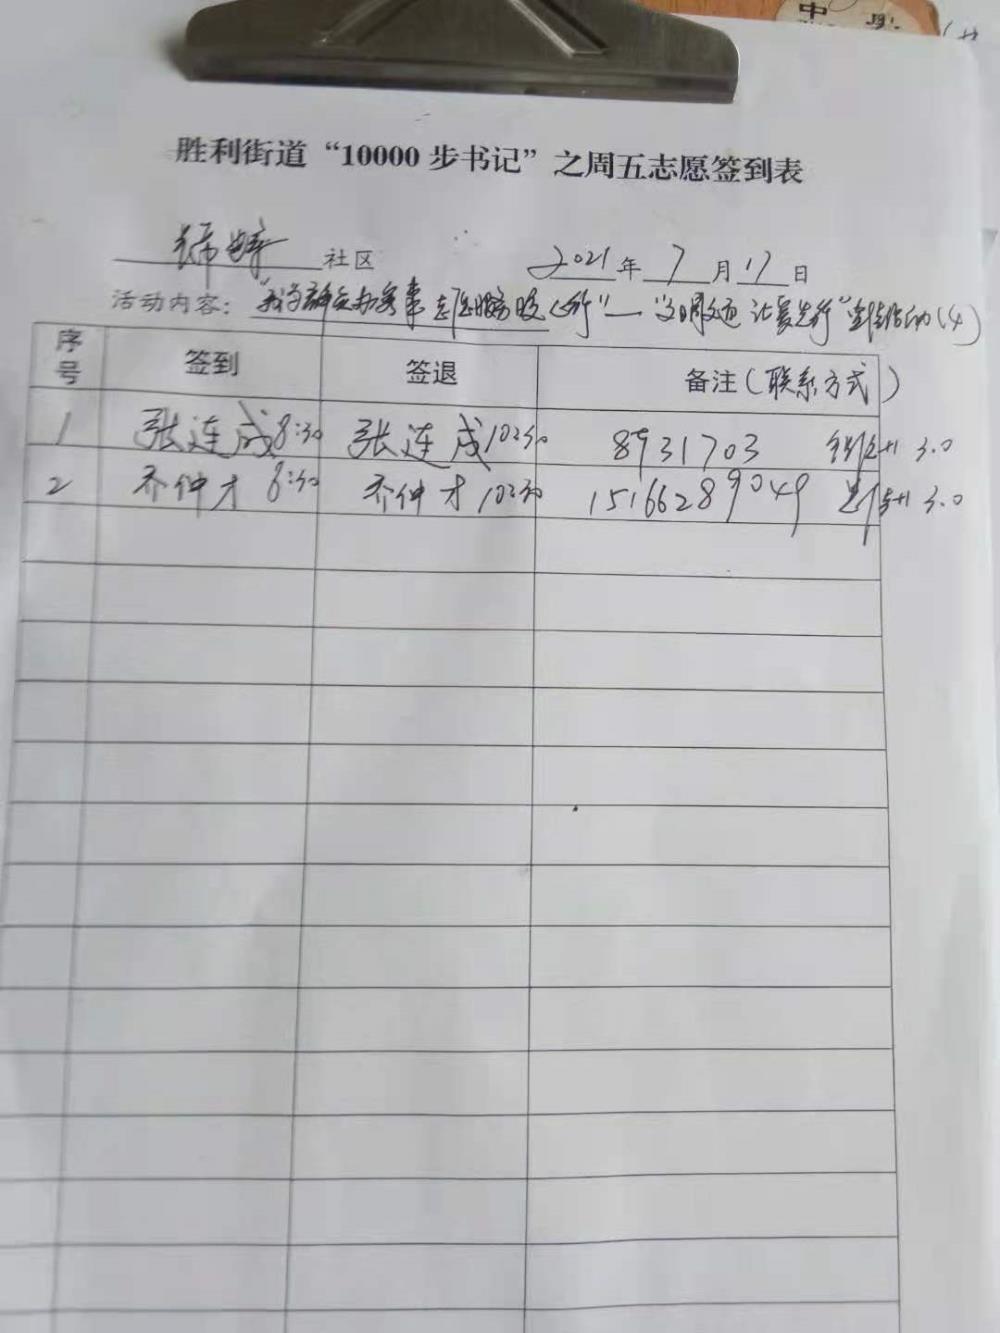 中
胜利街道“10000步书记”之周五志愿签到表
锦峰社区 2021年7月17日
活动内容：“我为群众办实事 志愿服务暖心行”—“文明交通 让爱先行”宣传活动(4)
序号 签到 签退 备注(联系方式)
1 张连成 8:30 张连成 10:30 8931703 3.0
2 乔仲才 8:30 乔仲才 10:30 15166289049 3.0